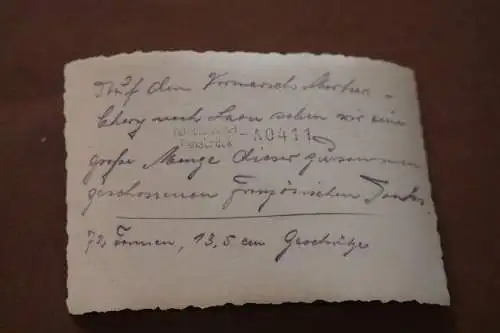 Auf dem Vormarsch Mortier -
Chery nach Laon sahen wir eine
A0411
große Menge dieser zusammen
geschossenen Französischen Tanks.
72 Tonnen, 13,5 cm Geschütze